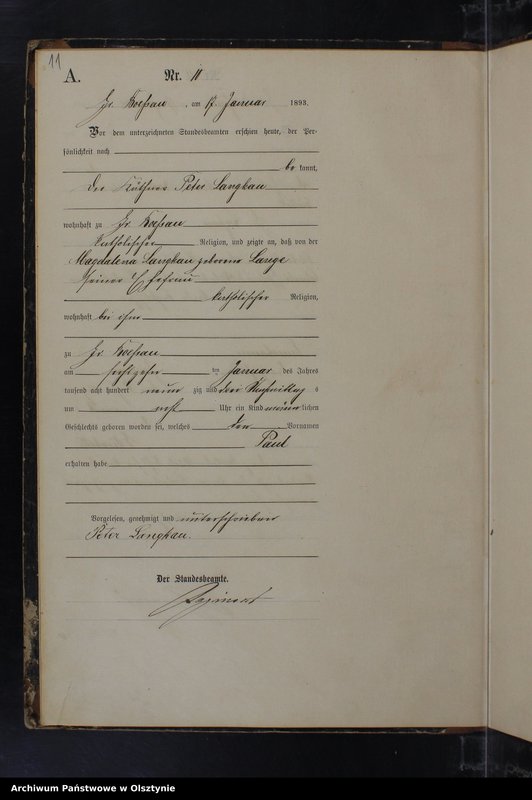 11
A. Nr. 11
Gr. Boessau, am 17. Januar 1893.
Vor dem unterzeichneten Standesbeamten erschien heute, der Per-
sönlichkeit nach
be kannt,
der Käthner Peter Langkau
wohnhaft zu Gr. Boessau
katholischer Religion, und zeigte an, daß von der
Magdalena Langkau geborene Lange
seiner Ehefrau
katholischer Religion,
wohnhaft bei ihm
zu Gr. Boessau
am sechszehn ten Januar des Jahres
tausend acht hundert neun zig und drei Nachmittag s
um acht Uhr ein Kind männ lichen
Geschlechts geboren worden sei, welches den Vornamen
Paul
erhalten habe
Vorgelesen, genehmigt und unterschrieben
Peter Langkau.
Der Standesbeamte.
Archiwum Państwowe w Olsztynie